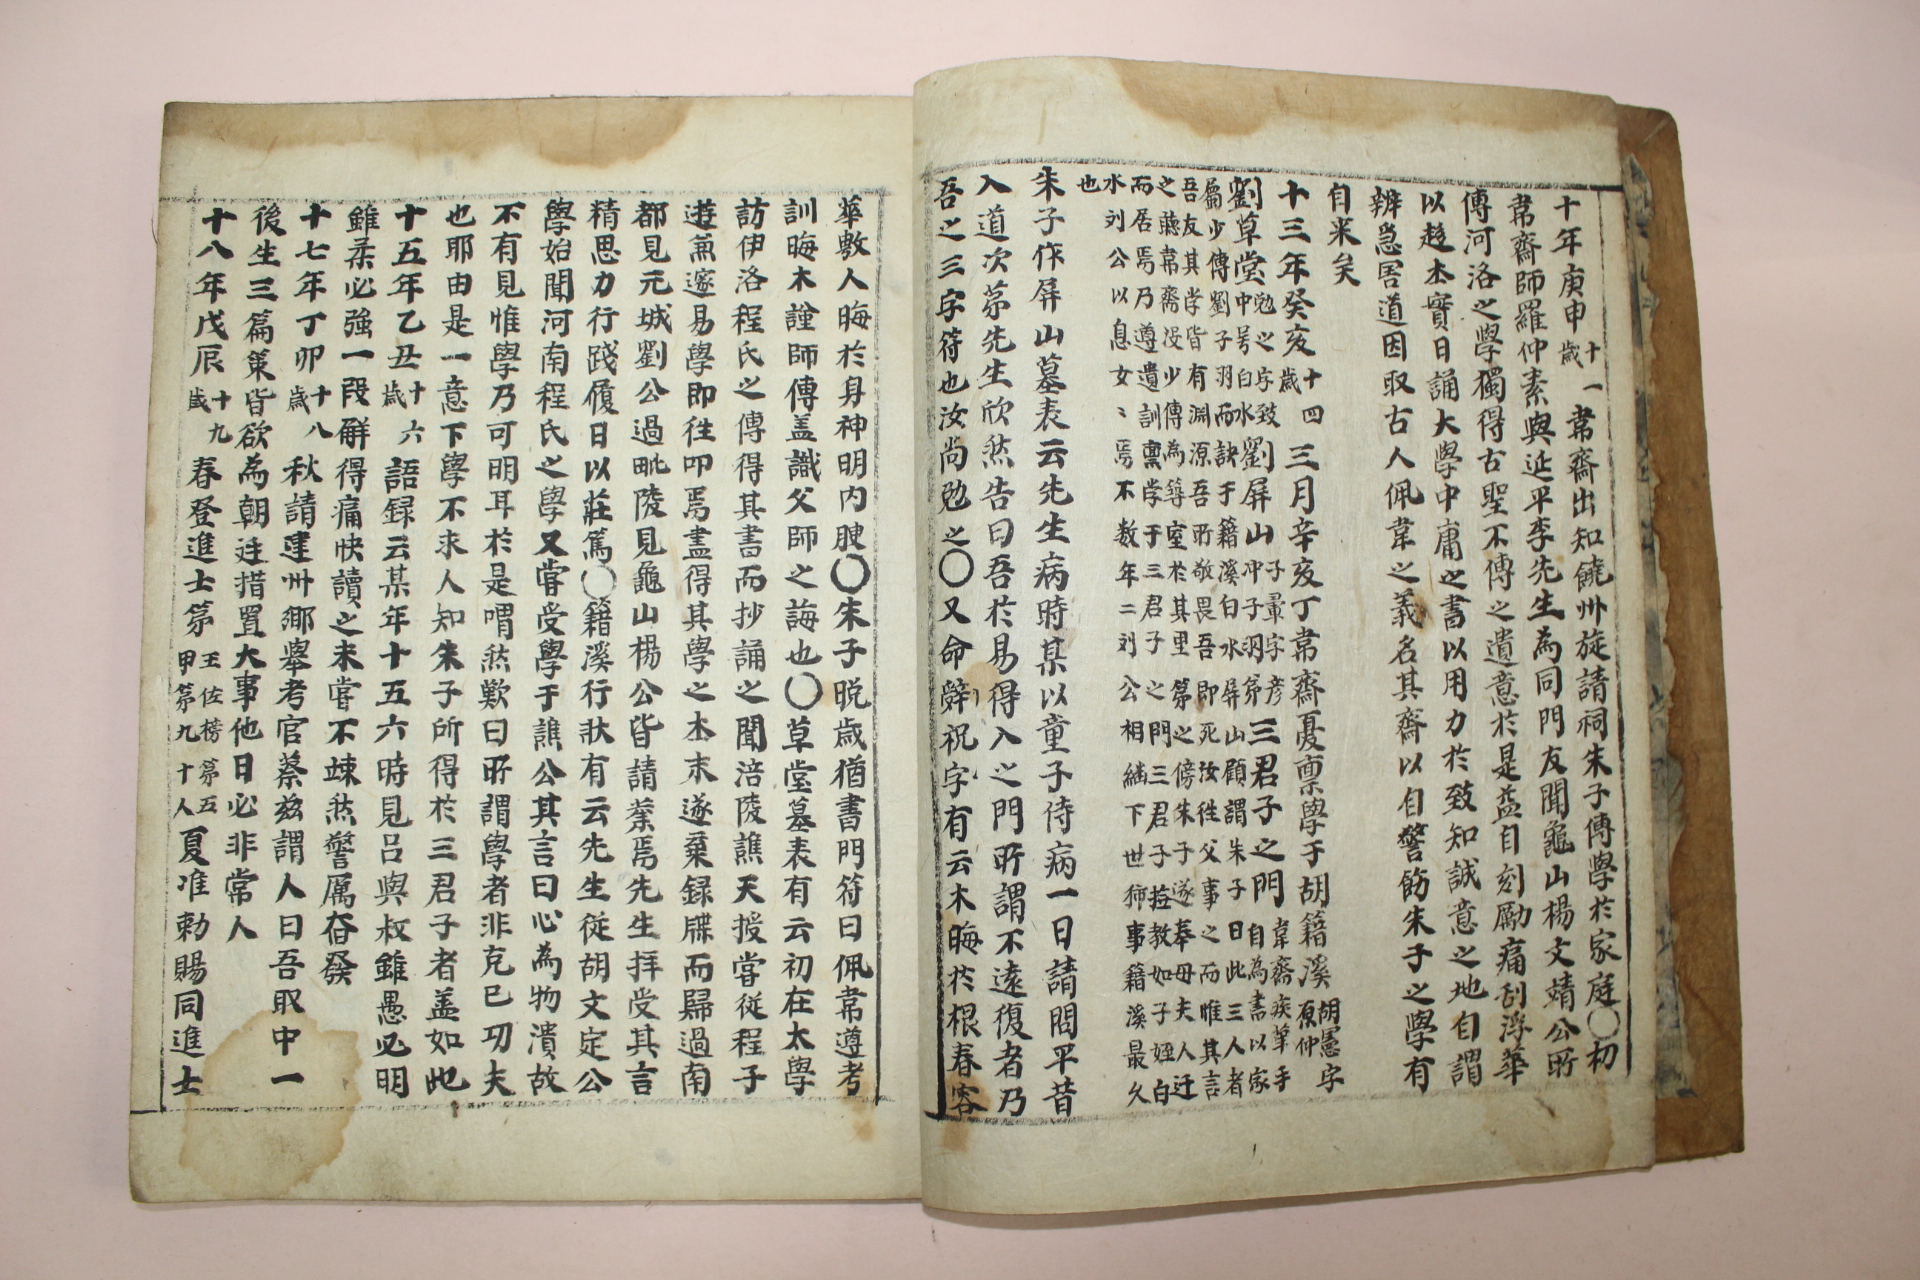 十年庚申十一歲韋齋出知饒州旋請祠朱子傳學於家庭○初
韋齋師羅仲素與延平李先生為同門友聞龜山楊文靖公所
傳河洛之學獨得古聖不傳之遺意於是益自刻勵痛刮浮華
以趍本實日誦大學中庸之書以用力於致知誠意之地自謂
辨急害道因取古人佩韋之義名其齋以自警飭朱子之學有
自來矣
十三年癸亥十四歲三月辛亥丁韋齋憂禀學于胡籍溪胡憲字原仲
劉草堂勉之字致中号白水劉屏山子翬字彦冲子羽弟三君子之門韋齋疾革手自為書以家
屬少傅劉子羽而訣于籍溪白水屏山顧謂朱子曰此三人者
吾友其学皆有淵源吾所敬畏吾即死汝往父事之而惟其言
之聽韋齋没少傅為築室於其里第之傍朱子遂奉母夫人迁
而居焉乃遵遺訓禀学于三君子之門三君子撫教如子姪白
水刘公以息女〻焉不数年二刘公相継下世独事籍溪最久
也
朱子作屏山墓表云先生病時某以童子侍病一日請問平昔
入道次苐先生欣然告曰吾於易得入之門所謂不遠復者乃
吾之三字符也汝尚勉之○又命辭祝字有云木晦於根春容
華敷人晦於身神明内腴○朱子晩歳猶書門符曰佩韋遵考
訓晦木謹師傳盖識父師之誨也○草堂墓表有云初在太學
訪伊洛程氏之傳得其書而抄誦之聞涪陵譙天授甞從程子
遊兼邃易學即徃叩焉盡得其學之本末遂棄録牒而歸過南
都見元城劉公過毗陵見龜山楊公皆請業焉先生拝受其言
精思力行踐履日以莊篤○籍溪行狀有云先生従胡文定公
學始聞河南程氏之學又甞受學于譙公其言曰心為物潰故
不有見惟學乃可明耳於是喟然歎曰所謂學者非克己功夫
也耶由是一意下學不求人知朱子所得於三君子者盖如此
十五年乙丑十六歲語録云某年十五六時見吕與叔雖愚必明
雖柔必強一段觧得痛快讀之未甞不竦然警厲奋發
十七年丁卯十八歲秋請建州郷舉考官蔡玆謂人曰吾取中一
後生三篇策皆欲為朝廷措置大事他日必非常人
十八年戊辰十九歲春登進士苐王佐榜第五甲第九十人夏准勅賜同進士